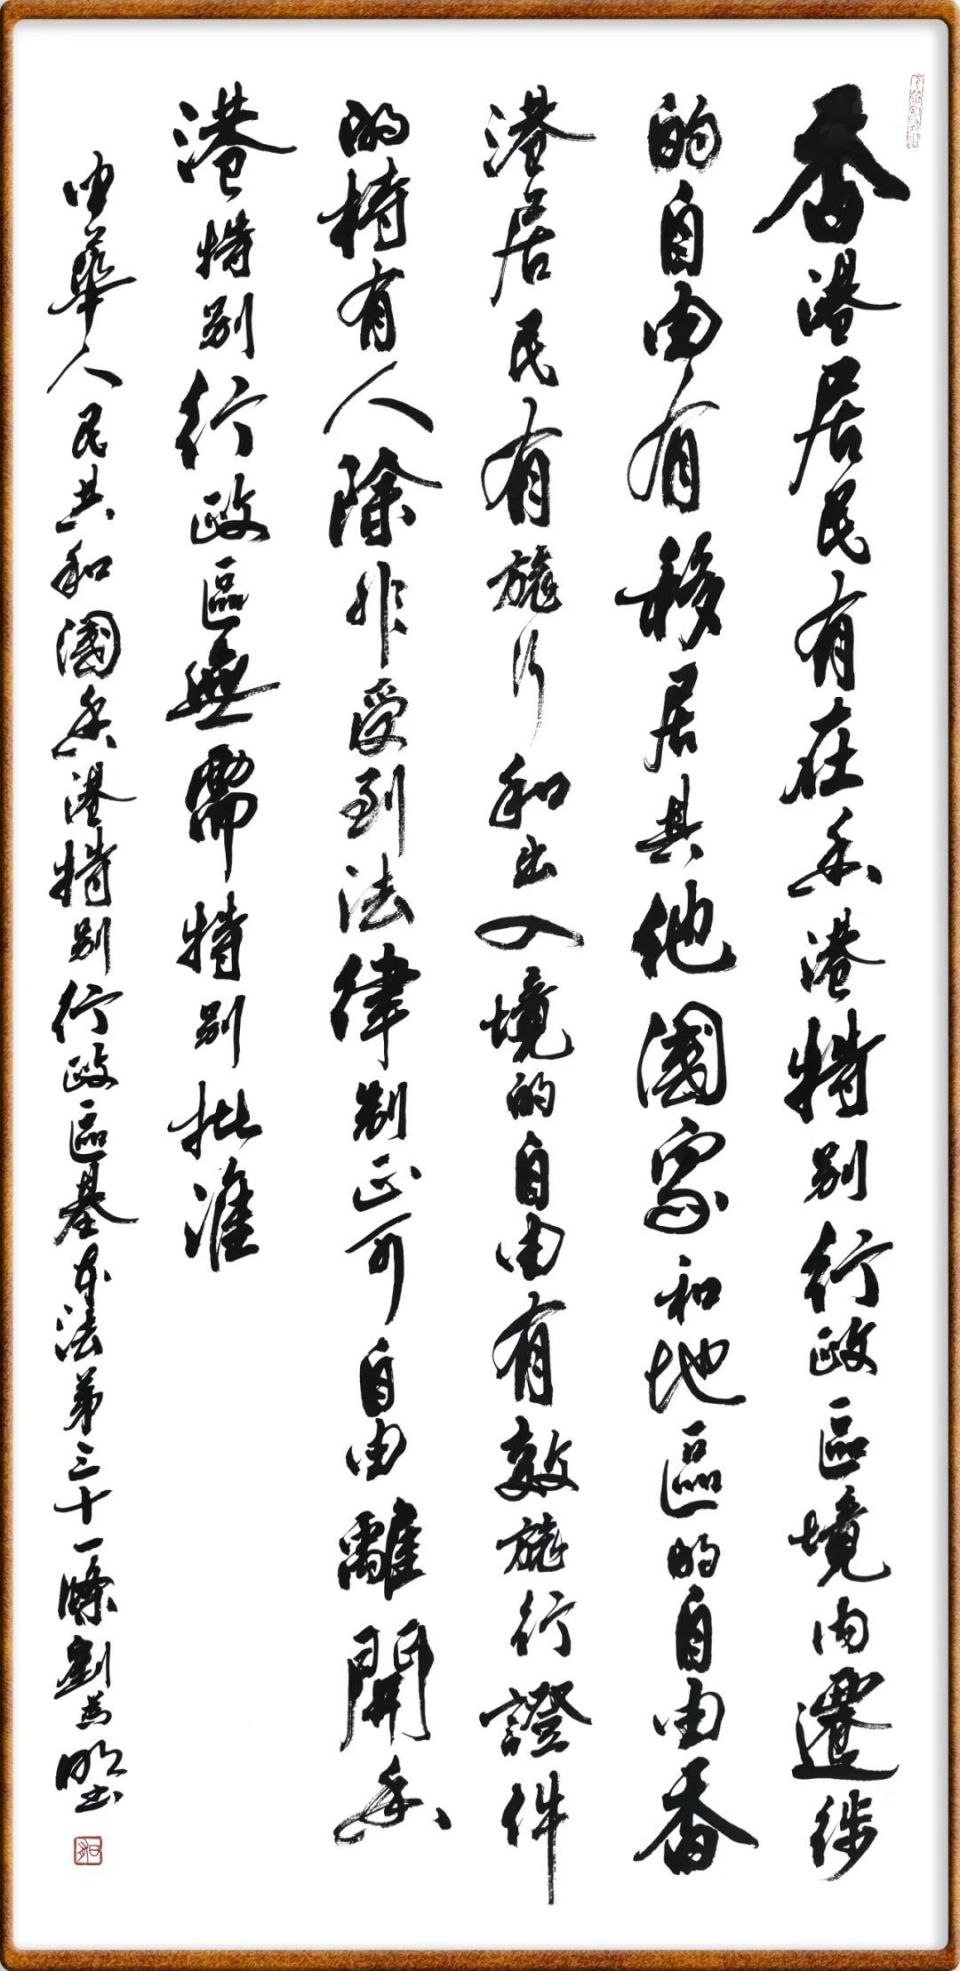 香港居民有在香港特别行政區境内遷徙
的自由有移居其他國家和地區的自由香
港居民有旅行和出入境的自由有效旅行證件
的持有人除非受到法律制止可自由離開香
港特别行政區無需特别批准
中華人民共和國香港特别行政區基本法第三十一條劉明書